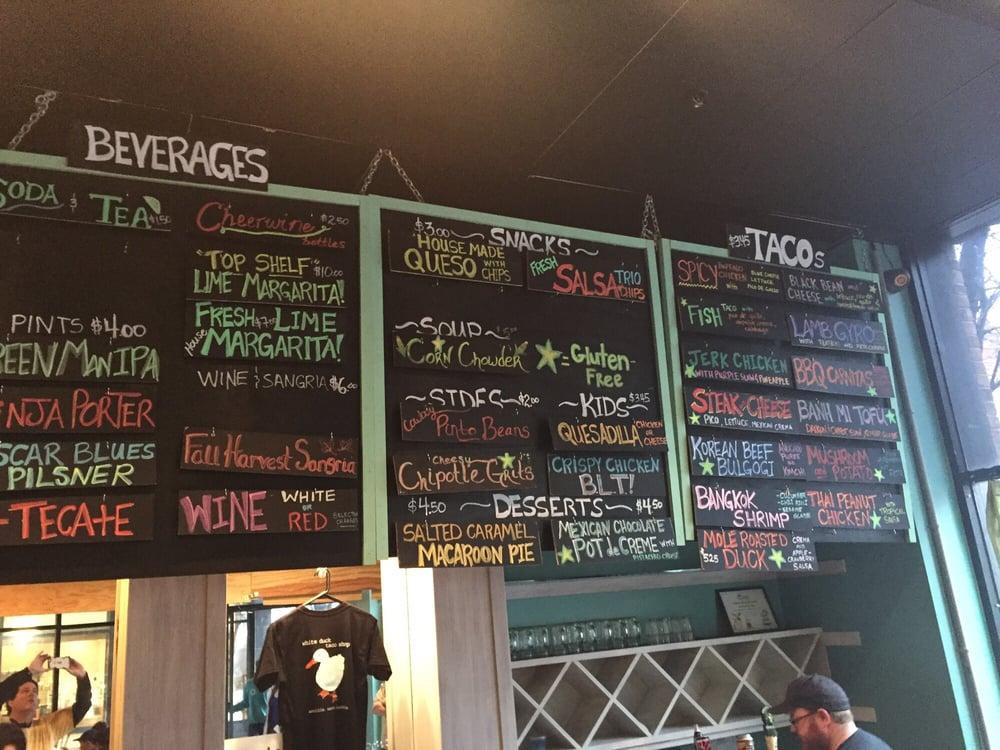 BEVERAGES
SODA & TEA $1.50
Cheerwine $2.50
bottles
"TOP SHELF" $10.00
LIME MARGARITA!
House FRESH LIME
MARGARITA!
PINTS $4.00
GREEN MAN IPA
NINJA PORTER
OSCAR BLUES
PILSNER
-TECATE
WINE & SANGRIA $6.00
Fall Harvest Sangria
WINE WHITE
OR
RED
$3.00 SNACKS
HOUSE MADE
QUESO WITH
CHIPS
FRESH SALSA TRIO
CHIPS
SOUP
Corn Chowder
= Gluten-
Free
SIDES $2.00
Cowboy
Pinto Beans
cheesy
Chipotle Grits
KIDS $3.45
QUESADILLA CHICKEN
OR
CHEESE
CRISPY CHICKEN
BLT!
$4.50 DESSERTS $4.50
SALTED CARAMEL
MACAROON PIE
MEXICAN CHOCOLATE
POT de CREME WITH
PISTACHIO
$3.45 TACOS
SPICY BUFFALO
CHICKEN
WITH BLUE CHEESE
LETTUCE
PICO DE GALLO
BLACK BEAN and
CHEESE
FISH TACO WITH
pico de gallo,
LAMB GYRO
WITH TZATZIKI
JERK CHICKEN
WITH PURPLE SLAW & PINEAPPLE
BBQ CARNITAS
STEAK & CHEESE
PICO, LETTUCE, MEXICAN CREMA
BANH MI TOFU
KOREAN BEEF
BULGOGI
MUSHROOM
and POTATO
BANGKOK
SHRIMP
THAI PEANUT
CHICKEN
TROPICAL
SALSA
MOLE ROASTED
$5.25 DUCK
CREMA
AND
APPLE-
CRANBERRY
SALSA
white duck
taco shop